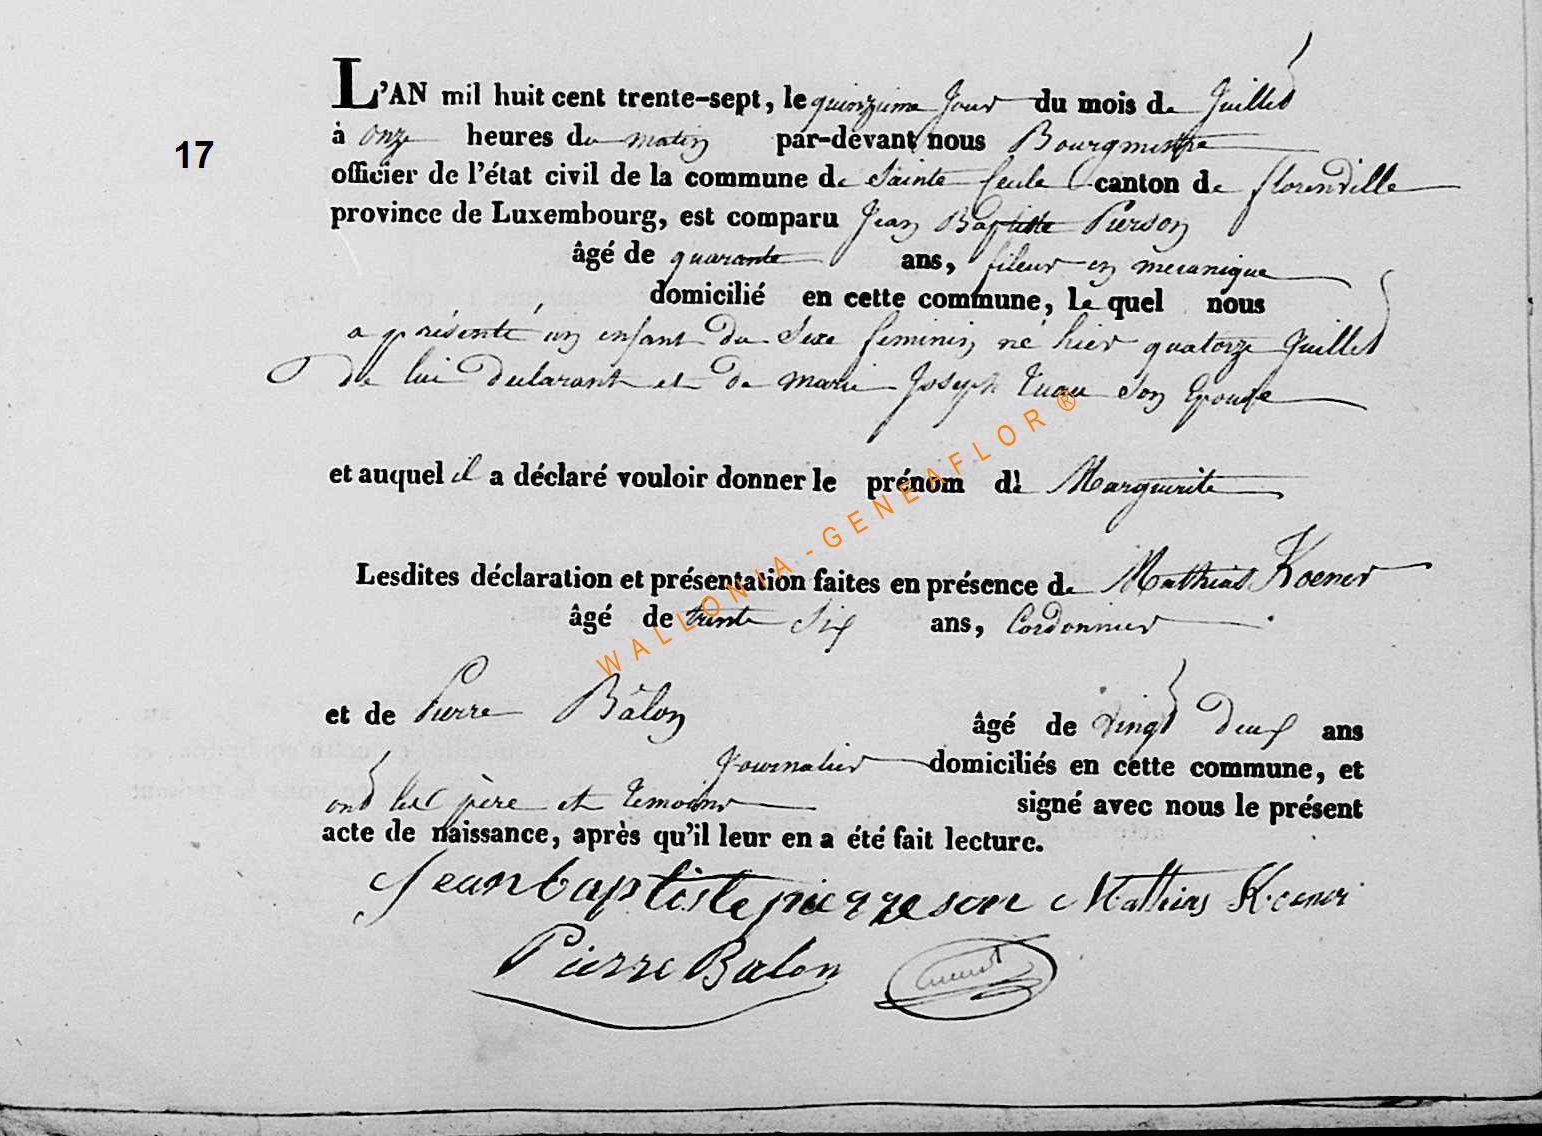 L'AN mil huit cent trente-sept, le quinzieme Jour du mois de Juillet
17
à onze heures du matin par-devant nous Bourgmestre
officier de l'état civil de la commune de Sainte Cecile canton de florenville
province de Luxembourg, est comparu Jean Baptiste Pierson
âgé de quarante ans, fileur en mecanique
domicilié en cette commune, Le quel nous
a présenté un enfant du Sexe feminin né hier quatorze Juillet
de lui declarant et de marie Joseph son Epouse
et auquel il a déclaré vouloir donner le prénom de Marguerite
Lesdites déclaration et présentation faites en présence de Mathias Koener
âgé de trente Six ans, Cordonnier
et de Pierre Bâlon âgé de vingt deux ans
Journalier domiciliés en cette commune, et
ont les père et temoins signé avec nous le présent
acte de naissance, après qu'il leur en a été fait lecture.
Jean baptiste pierreson Mathias Koener
Pierre Balon
WALLONIA - GENEAFLOR ®